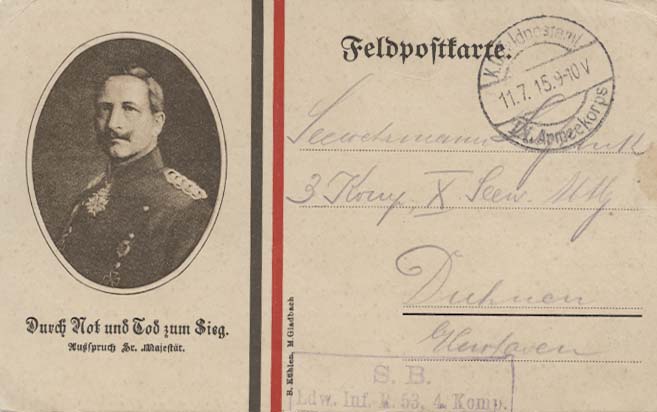 Feldpostkarte.
K.D. Feldpostamt
11.7.15.9-10 V
IX. Armeekorps
Seewehrmann
3 Komp. X Seew.
Duhnen
Durch Not und Tod zum Sieg.
Ausspruch Sr. Majestät.
B. Kühlen, M.Gladbach
S. B.
Ldw. Inf. R. 53, 4. Komp.